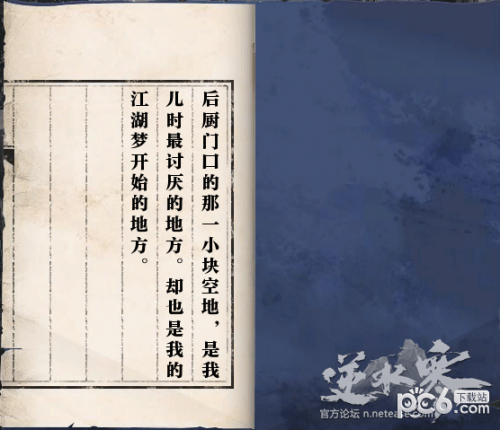 后厨门口的那一小块空地，是我
儿时最讨厌的地方。却也是我的
江湖梦开始的地方。
逆水寒
官方论坛 n.netease.com
pc6.com
下载站